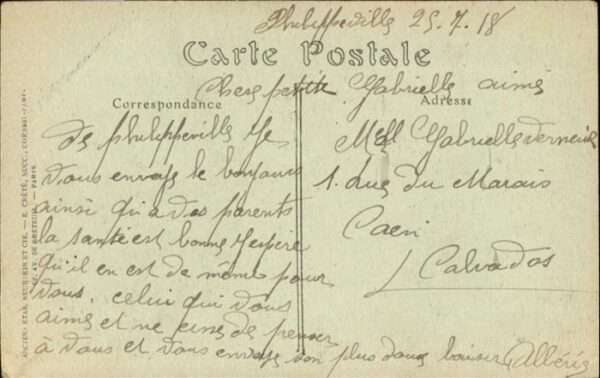 Philippeville 25.7.18
Carte Postale
Chere petite Gabrielle aimé
Correspondance
Adresse
de philippeville Je
vous envoye le bonjour
ainsi qu'a vos parents
la santé est bonne Jespère
qu'il en est de même pour
vous. celui qui vous
aime et ne cesse de penser
à vous et vous envoye son plus doux baiser Albéric
Mell Gabrielle
1. Rue du Marais
Caen
Calvados